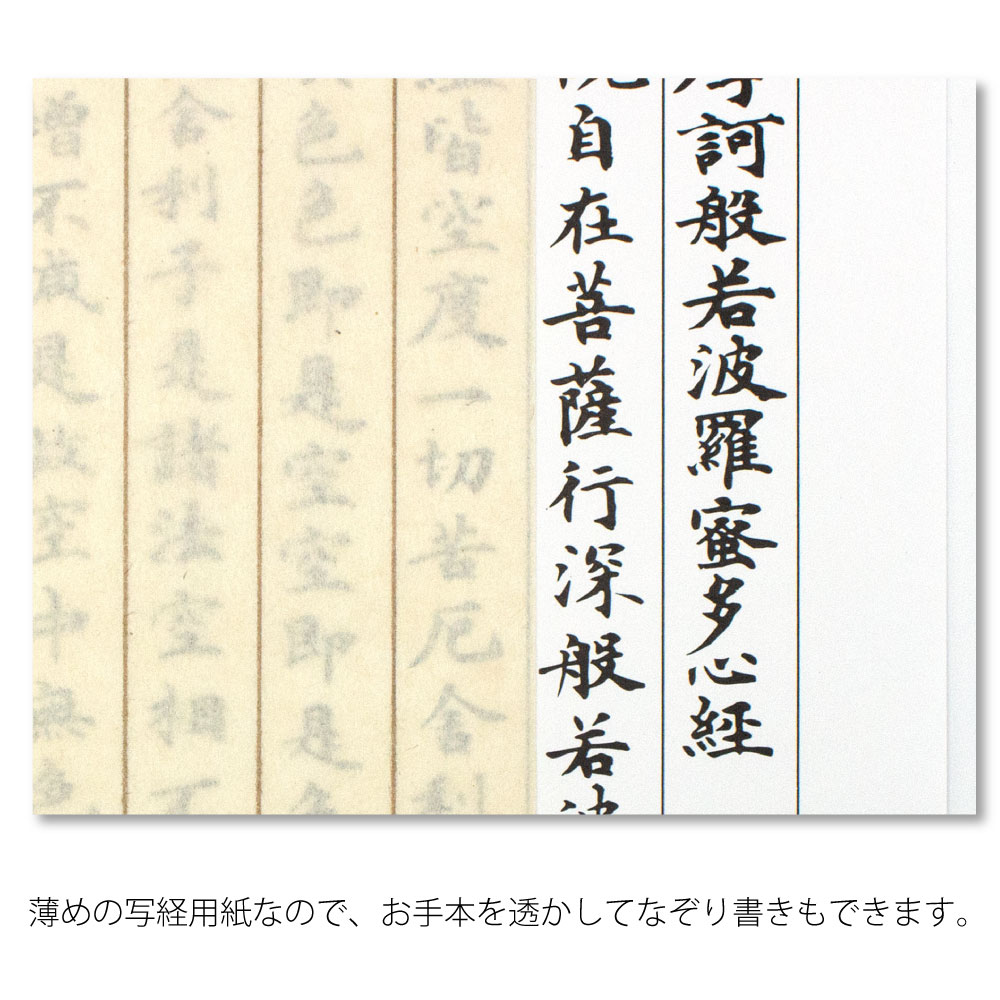 訶般若波羅蜜多心経
自在菩薩行深般若波
皆空度一切苦厄舎利
色色即是空空即是色
舎利子是諸法空相不
増不減是故空中無色
薄めの写経用紙なので、お手本を透かしてなぞり書きもできます。